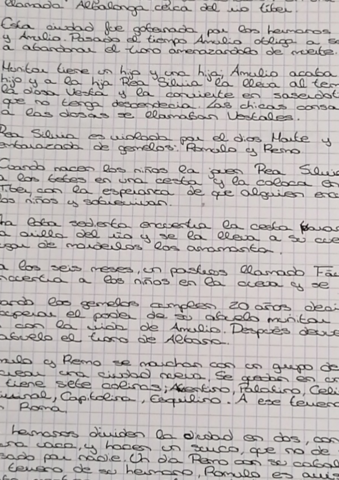 llamada Albalonga cerca del río tíber
Esta ciudad fue gobernada por los hermanos
y Amulio. Pasado el tiempo Amulio obliga a
a abandonar el trono amenazandolo de muerte.
Munitor tiene un hijo y una hija, Amulio acaba
hijo y a la hija Rea Silvia la lleva al
la diosa Vesta y la convierte en
que no tenga descendencia. Las chicas
a las diosas se llamaban Vestales.
Rea Silvia es violada por el dios Marte y
embarazada de gemelos: Romulo y Remo.
Cuando nacen los niños la joven Rea
a los bebés en una cesta y la coloca en
Tíber con la esperanza de que alguien
los niños y sobrevivan.
loba sedienta encuentra la cesta
a orilla del río y se la lleva a su
los amamanta.
a los seis meses, un pastor llamado
encuentra a los niños en la cueva y se
los gemelos cumplen 20 años
el poder de su abuelo munitor
con la vida de Amulio. Después
abuelo el trono de
y Remo se marchan con un grupo de
crear una ciudad nueva. Se quedan en
tiene siete colinas; Aventino, Palatino,
Capitolina, Esquilino. A ese
Roma
hermanos dividen la ciudad en dos, con
una vaca, y hacen un surco, que no
por nadie. Un día Remo con su
terreno de su hermano, Romulo